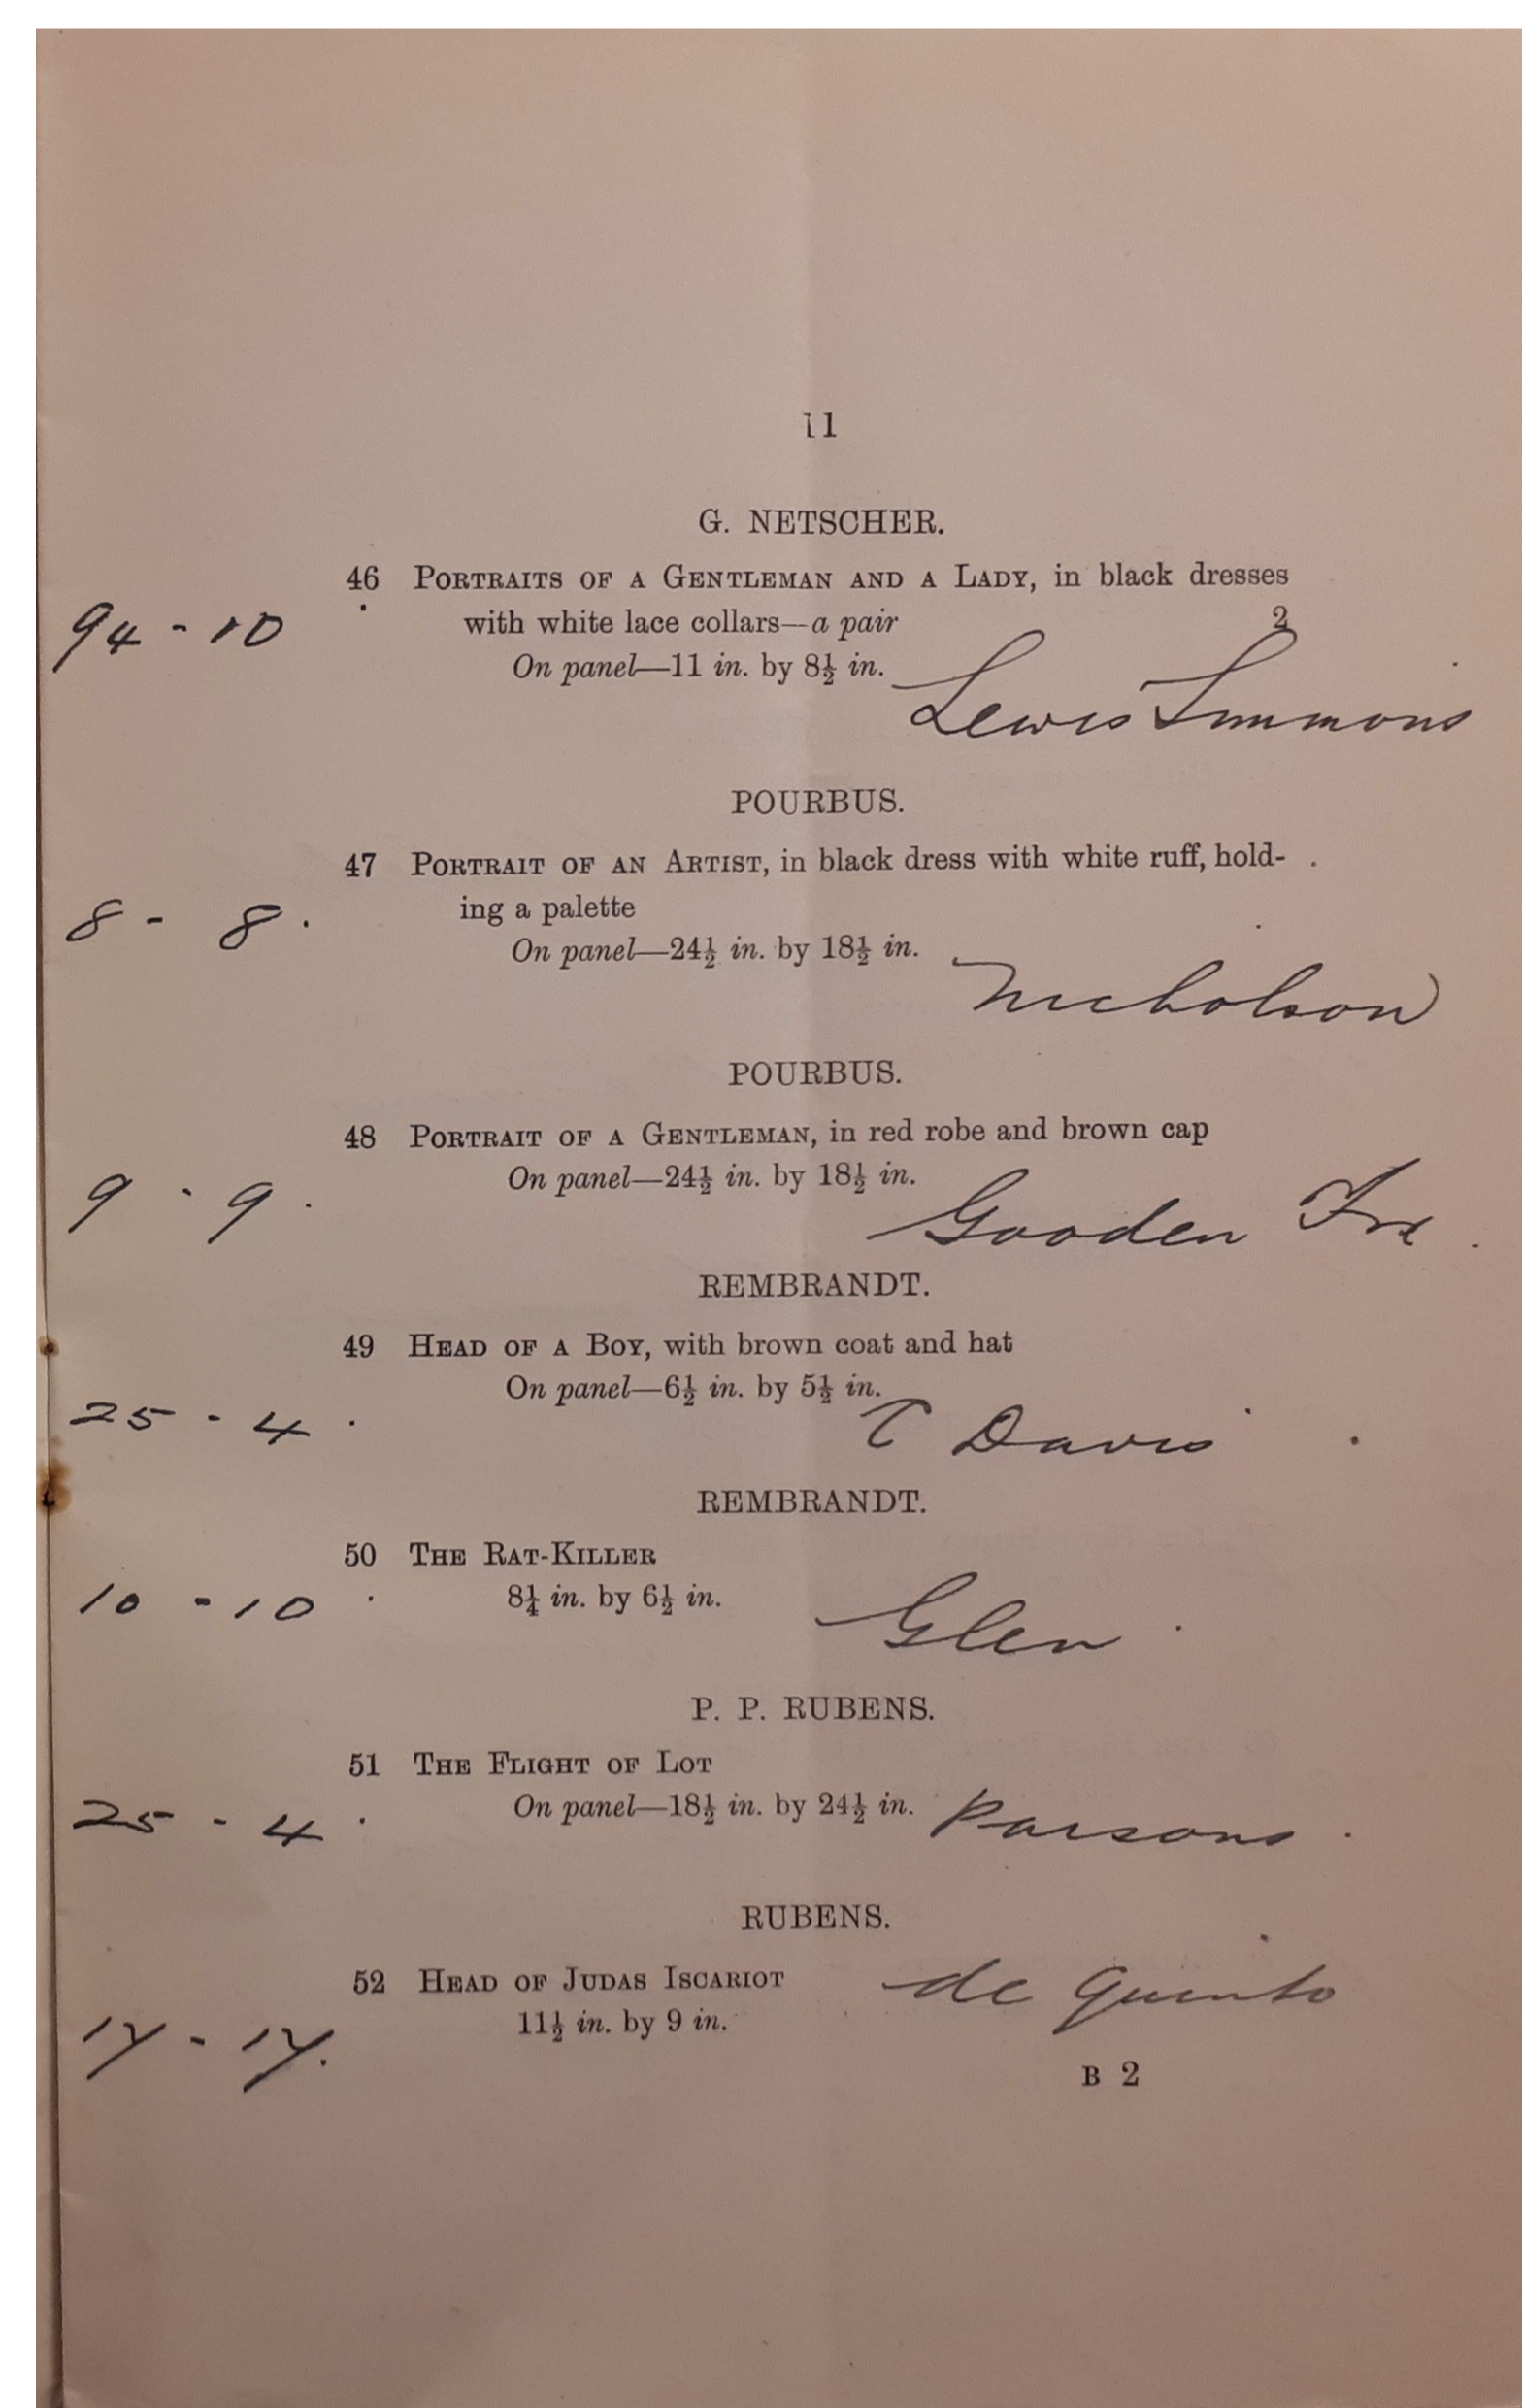 11
G. NETSCHER.
46 PORTRAITS OF A GENTLEMAN AND A LADY, in black dresses
with white lace collars—a pair 2
94 - 10
On panel—11 in. by 8½ in.
Lewis Simmons
POURBUS.
47 PORTRAIT OF AN ARTIST, in black dress with white ruff, hold-
ing a palette
8 - 8.
On panel—24½ in. by 18½ in.
Nicholson
POURBUS.
48 PORTRAIT OF A GENTLEMAN, in red robe and brown cap
On panel—24½ in. by 18½ in.
9 - 9.
Gooden Fox
REMBRANDT.
49 HEAD OF A BOY, with brown coat and hat
On panel—6½ in. by 5½ in.
25 - 4.
T Davis
REMBRANDT.
50 THE RAT-KILLER
8¼ in. by 6½ in.
10 - 10
Glen
P. P. RUBENS.
51 THE FLIGHT OF LOT
On panel—18½ in. by 24½ in.
25 - 4.
Parsons
RUBENS.
52 HEAD OF JUDAS ISCARIOT
de Quinto
11½ in. by 9 in.
17 - 17.
B 2